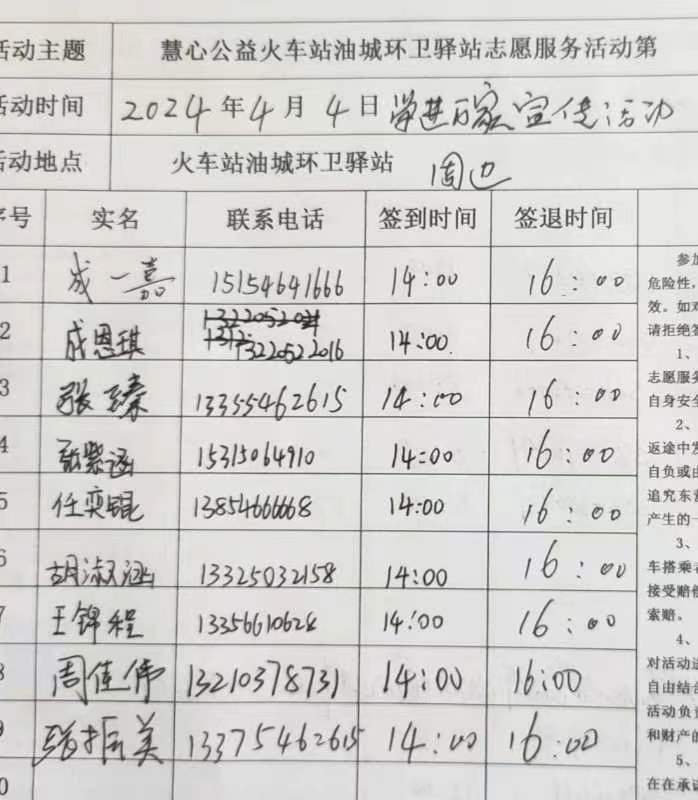 活动主题 慧心公益火车站油城环卫驿站志愿服务活动第
活动时间 2024年4月4日 学进万家宣传活动
活动地点 火车站油城环卫驿站 周边
序号 实名 联系电话 签到时间 签退时间
1 成一嘉 15154641666 14:00 16:00
2 成恩琪 13220522016 14:00 16:00
3 张臻 13355462615 14:00 16:00
4 张紫涵 15315064910 14:00 16:00
5 任奕锟 13854666668 14:00 16:00
6 胡淑涵 13325032158 14:00 16:00
7 王锦程 13356610628 14:00 16:00
8 周佳伟 13210378731 14:00 16:00
9 张振美 13375462615 14:00 16:00
0
参加
危险性,
效。如对
请拒绝签
1、
志愿服务
自身安全
2、
返途中发
自负或由
追究东营
产生的一
3、
车搭乘者
接受赔偿
索赔。
4、
对活动过
自由结合
活动负责
和财产的
5、
在在承诺